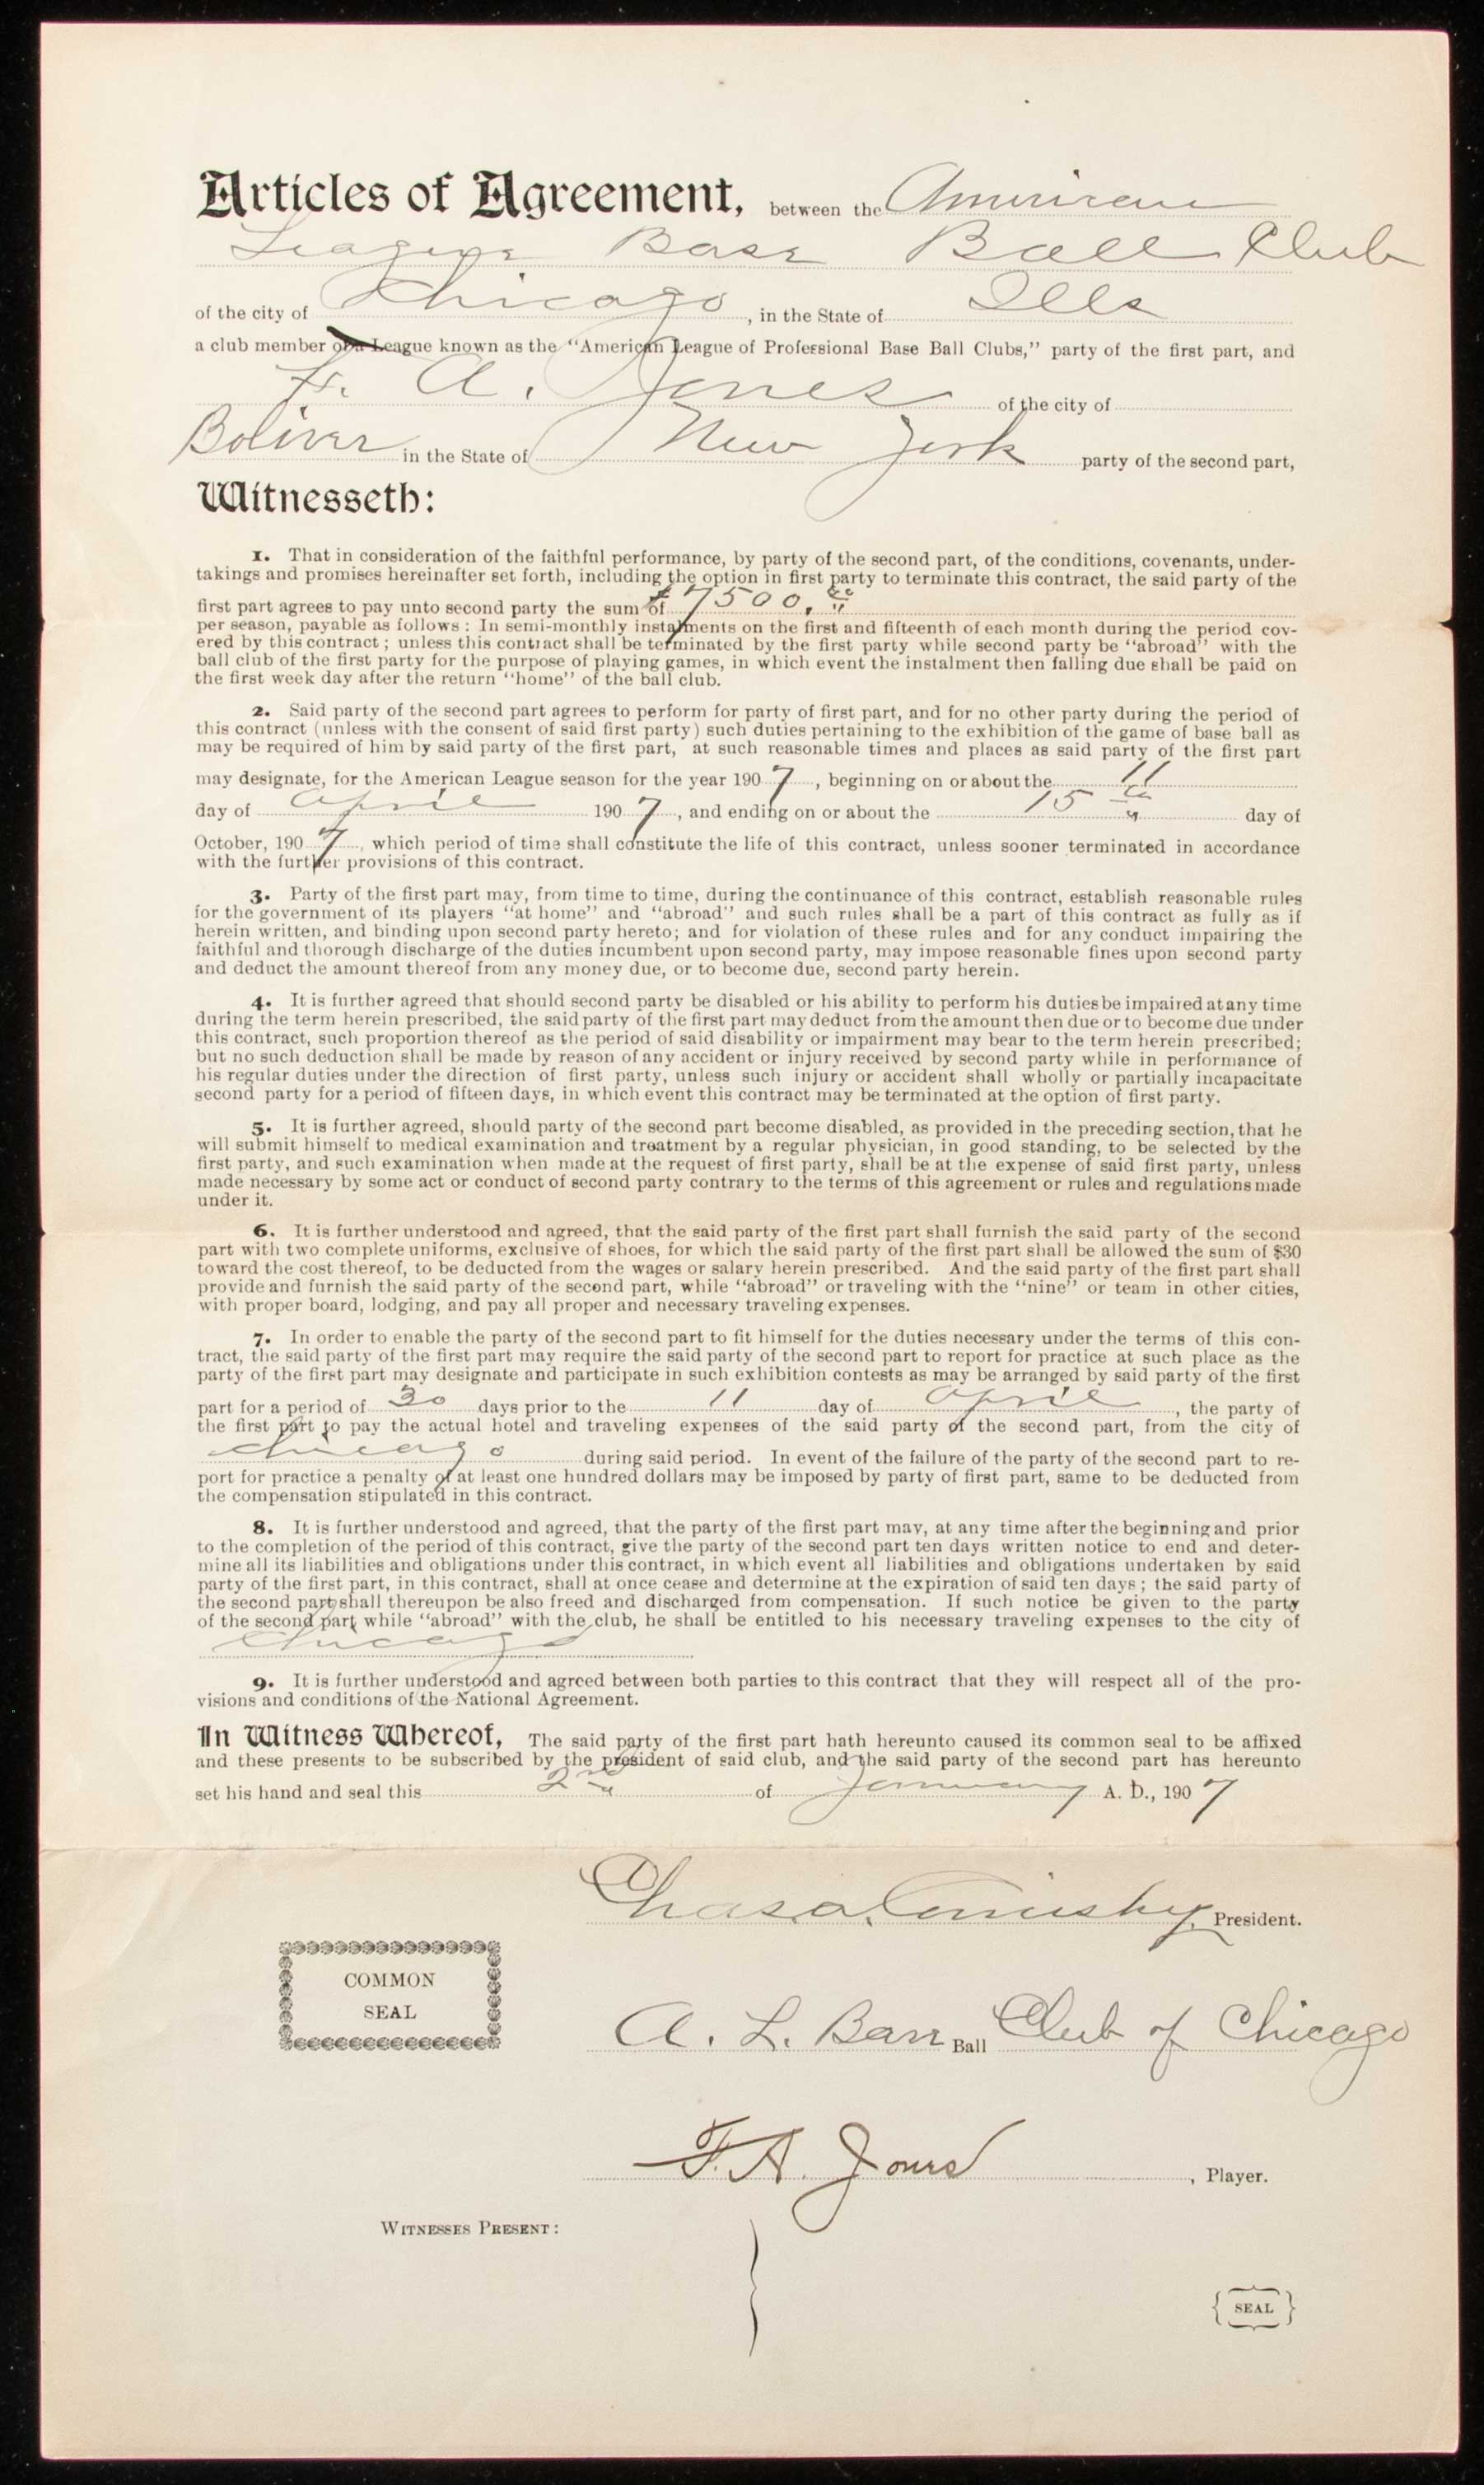 Articles of Agreement, between the American
League Base Ball Club
of the city of Chicago, in the State of Ills
a club member of a League known as the "American League of Professional Base Ball Clubs," party of the first part, and
F. A. Jones of the city of
Boliver in the State of New York party of the second part,
Witnesseth:
1. That in consideration of the faithful performance, by party of the second part, of the conditions, covenants, under-
takings and promises hereinafter set forth, including the option in first party to terminate this contract, the said party of the
first part agrees to pay unto second party the sum of $7500.00
per season, payable as follows: In semi-monthly instalments on the first and fifteenth of each month during the period cov-
ered by this contract; unless this contract shall be terminated by the first party while second party be "abroad" with the
ball club of the first party for the purpose of playing games, in which event the instalment then falling due shall be paid on
the first week day after the return "home" of the ball club.
2. Said party of the second part agrees to perform for party of first part, and for no other party during the period of
this contract (unless with the consent of said first party) such duties pertaining to the exhibition of the game of base ball as
may be required of him by said party of the first part, at such reasonable times and places as said party of the first part
may designate, for the American League season for the year 1907, beginning on or about the 11
day of April 1907, and ending on or about the 15th day of
October, 1907, which period of time shall constitute the life of this contract, unless sooner terminated in accordance
with the further provisions of this contract.
3. Party of the first part may, from time to time, during the continuance of this contract, establish reasonable rules
for the government of its players "at home" and "abroad" and such rules shall be a part of this contract as fully as if
herein written, and binding upon second party hereto; and for violation of these rules and for any conduct impairing the
faithful and thorough discharge of the duties incumbent upon second party, may impose reasonable fines upon second party
and deduct the amount thereof from any money due, or to become due, second party herein.
4. It is further agreed that should second party be disabled or his ability to perform his duties be impaired at any time
during the term herein prescribed, the said party of the first part may deduct from the amount then due or to become due under
this contract, such proportion thereof as the period of said disability or impairment may bear to the term herein prescribed;
but no such deduction shall be made by reason of any accident or injury received by second party while in performance of
his regular duties under the direction of first party, unless such injury or accident shall wholly or partially incapacitate
second party for a period of fifteen days, in which event this contract may be terminated at the option of first party.
5. It is further agreed, should party of the second part become disabled, as provided in the preceding section, that he
will submit himself to medical examination and treatment by a regular physician, in good standing, to be selected by the
first party, and such examination when made at the request of first party, shall be at the expense of said first party, unless
made necessary by some act or conduct of second party contrary to the terms of this agreement or rules and regulations made
under it.
6. It is further understood and agreed, that the said party of the first part shall furnish the said party of the second
part with two complete uniforms, exclusive of shoes, for which the said party of the first part shall be allowed the sum of $30
toward the cost thereof, to be deducted from the wages or salary herein prescribed. And the said party of the first part shall
provide and furnish the said party of the second part, while "abroad" or traveling with the "nine" or team in other cities,
with proper board, lodging, and pay all proper and necessary traveling expenses.
7. In order to enable the party of the second part to fit himself for the duties necessary under the terms of this con-
tract, the said party of the first part may require the said party of the second part to report for practice at such place as the
party of the first part may designate and participate in such exhibition contests as may be arranged by said party of the first
part for a period of 30 days prior to the 11 day of April, the party of
the first part to pay the actual hotel and traveling expenses of the said party of the second part, from the city of
Chicago during said period. In event of the failure of the party of the second part to re-
port for practice a penalty of at least one hundred dollars may be imposed by party of first part, same to be deducted from
the compensation stipulated in this contract.
8. It is further understood and agreed, that the party of the first part may, at any time after the beginning and prior
to the completion of the period of this contract, give the party of the second part ten days written notice to end and deter-
mine all its liabilities and obligations under this contract, in which event all liabilities and obligations undertaken by said
party of the first part, in this contract, shall at once cease and determine at the expiration of said ten days; the said party of
the second part shall thereupon be also freed and discharged from compensation. If such notice be given to the party
of the second part while "abroad" with the club, he shall be entitled to his necessary traveling expenses to the city of
Chicago
9. It is further understood and agreed between both parties to this contract that they will respect all of the pro-
visions and conditions of the National Agreement.
In Witness Whereof, The said party of the first part hath hereunto caused its common seal to be affixed
and these presents to be subscribed by the president of said club, and the said party of the second part has hereunto
set his hand and seal this 2nd of January A. D., 1907
Chas a. Comiskey President.
COMMON
SEAL
A. L. Base Ball Club of Chicago
F. A. Jones, Player.
WITNESSES PRESENT:
SEAL